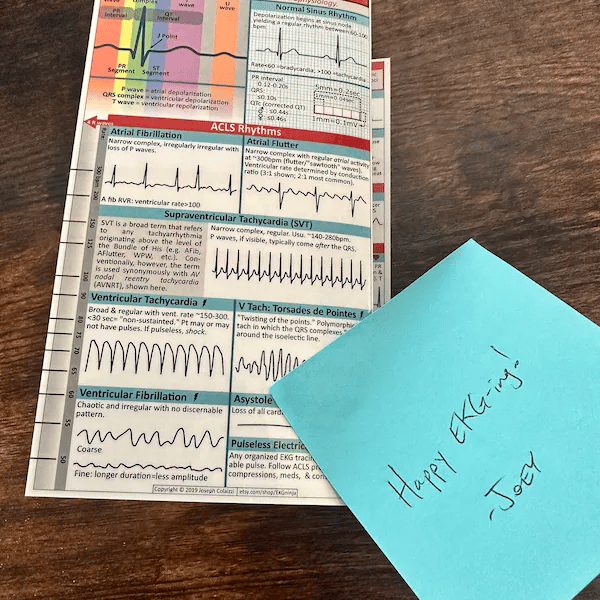 physiology.
complex
wave
wave
U
wave
PR
interval
QT
interval
J Point
PR
Segment
ST
Segment
P wave = atrial depolarization
QRS complex = ventricular depolarization
T wave = ventricular repolarization
Normal Sinus Rhythm
Depolarization begins at sinus node
yielding a regular rhythm between 60-100
bpm.
Rate<60 =bradycardia; >100 =tachycardia
PR interval:
0.12-0.20s
QRS:
≤0.10s
QTc (corrected QT)
♂: ≤0.44s
♀: ≤0.46s
5mm=0.2sec
1mm=0.04sec
1mm=0.1mV
ACLS Rhythms
Atrial Fibrillation
Narrow complex, irregularly irregular with
loss of P waves.
A fib RVR: ventricular rate>100
Atrial Flutter
Narrow complex with regular atrial activity
at ~300bpm (flutter/"sawtooth" waves).
Ventricular rate determined by conduction
ratio (3:1 shown; 2:1 most common).
Supraventricular Tachycardia (SVT)
SVT is a broad term that refers
to any tachyarrhythmia
originating above the level of
the Bundle of His (e.g. AFib,
AFlutter, WPW, etc.). Con-
ventionally, however, the term
is used synonymously with AV
nodal reentry tachycardia
(AVNRT), shown here.
Narrow complex, regular. Usu. ~140-280bpm.
P waves, if visible, typically come after the QRS.
Ventricular Tachycardia
Broad & regular with vent. rate ~150-300.
<30 sec= "non-sustainted." Pt may or may
not have pulses. If pulseless, shock.
V Tach: Torsades de Pointes
"Twisting of the points." Polymorphic
tach in which the QRS complexes
around the isoelectic line.
Ventricular Fibrillation
Chaotic and irregular with no discernable
pattern.
Coarse
Fine: longer duration=less amplitude
Asystole
Loss of all
Pulseless
Any organized EKG
able pulse. Follow ACLS
compressions, meds, &
Copyright © 2019 Joseph Colaizzi | etsy.com/shop/EKGninja
150
125
100
90
80
75
70
65
60
55
50
Happy EKG-ing!
-JOEY